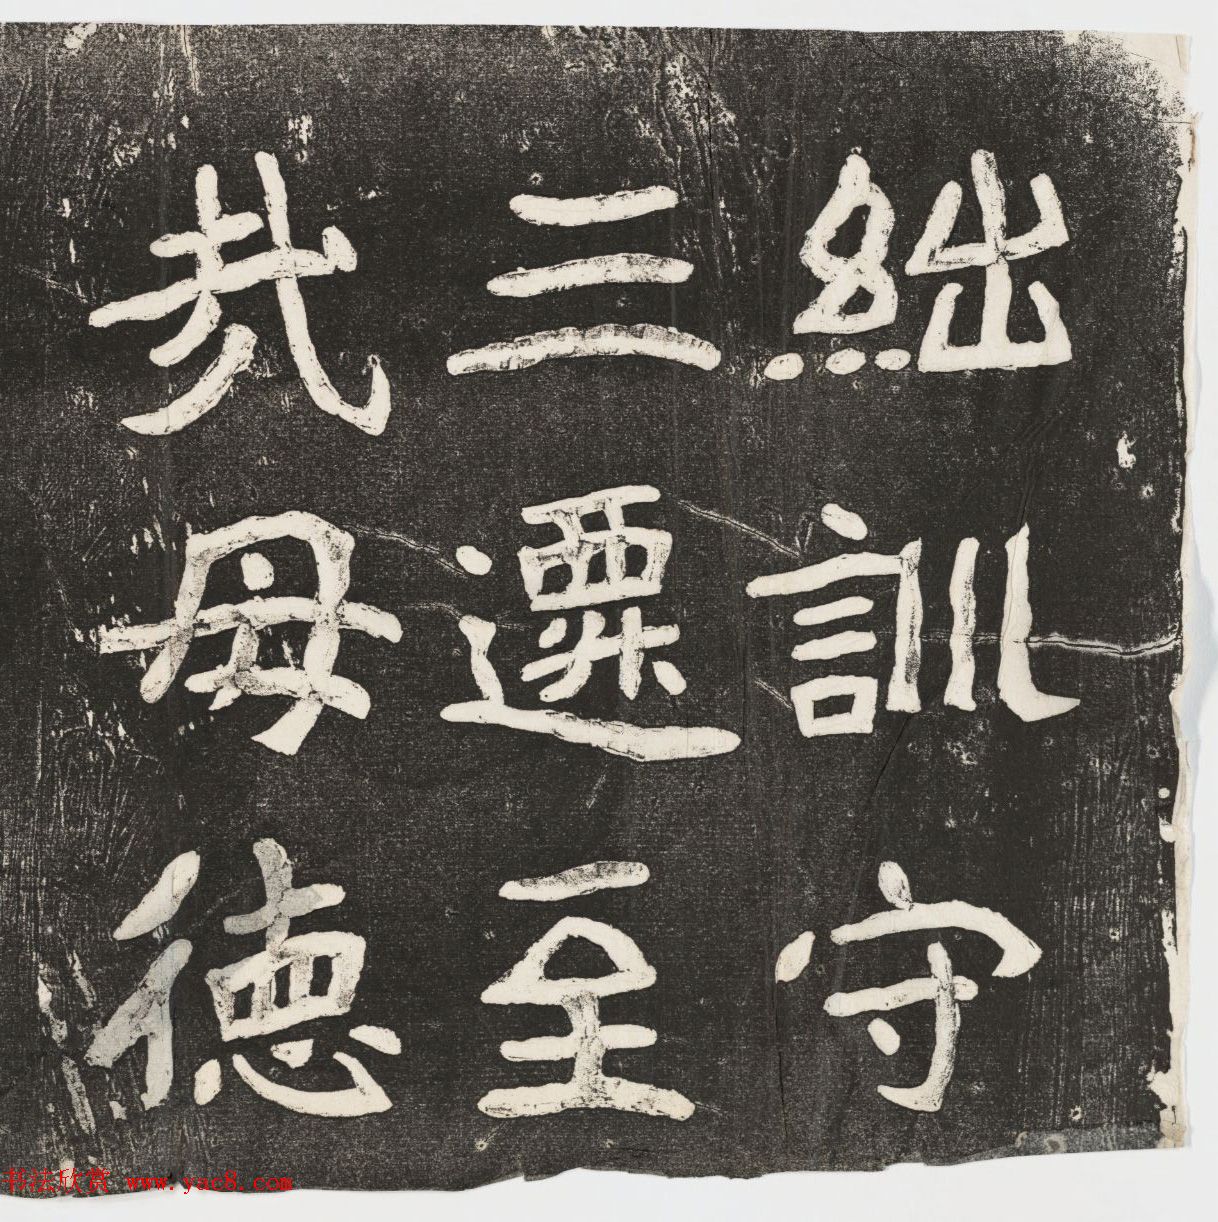 絀訓守
三遷至
母德
书法欣赏 www.yac8.com